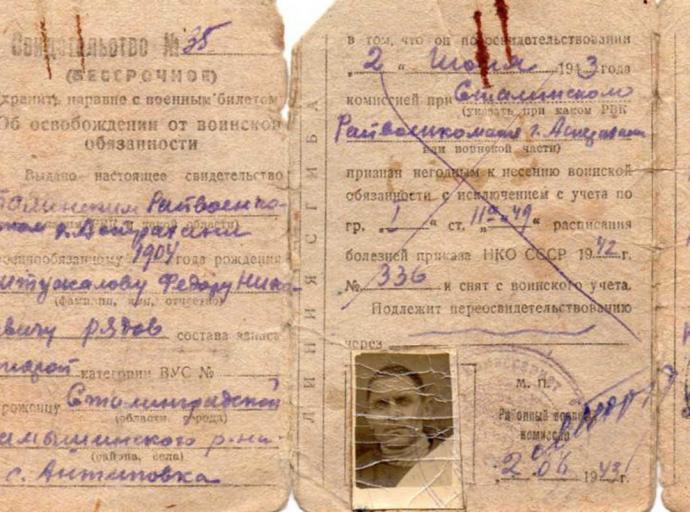 Свидетельство № 35
(БЕССРОЧНОЕ)
хранить наравне с военным билетом
Об освобождении от воинской
обязанности
Выдано настоящее свидетельство
Райвоенко-
г. Астрахани
1904 года рождения
Федору Нико-
(фамилия, имя, отчество)
вичу рядов состава запаса
категории ВУС №
Сталинградской
(области, города)
р-на
(района, села)
с. Антиповка
ЛИНИЯ СГИБА
в том, что он по освидетельствовании
„2“ июня 1943 года
комиссией при Сталинском
(указать при каком РВК
Райвоенкомате г. Астрахани
или воинской части)
признан негодным к несению воинской
обязанности с исключением с учета по
гр. „I“ ст. расписания
болезней приказа НКО СССР 1942 г.
№ 336 и снят с воинского учета.
Подлежит переосвидетельствованию
через
М. П.
Районный военный
комиссар
„2“ 06 1943 г.